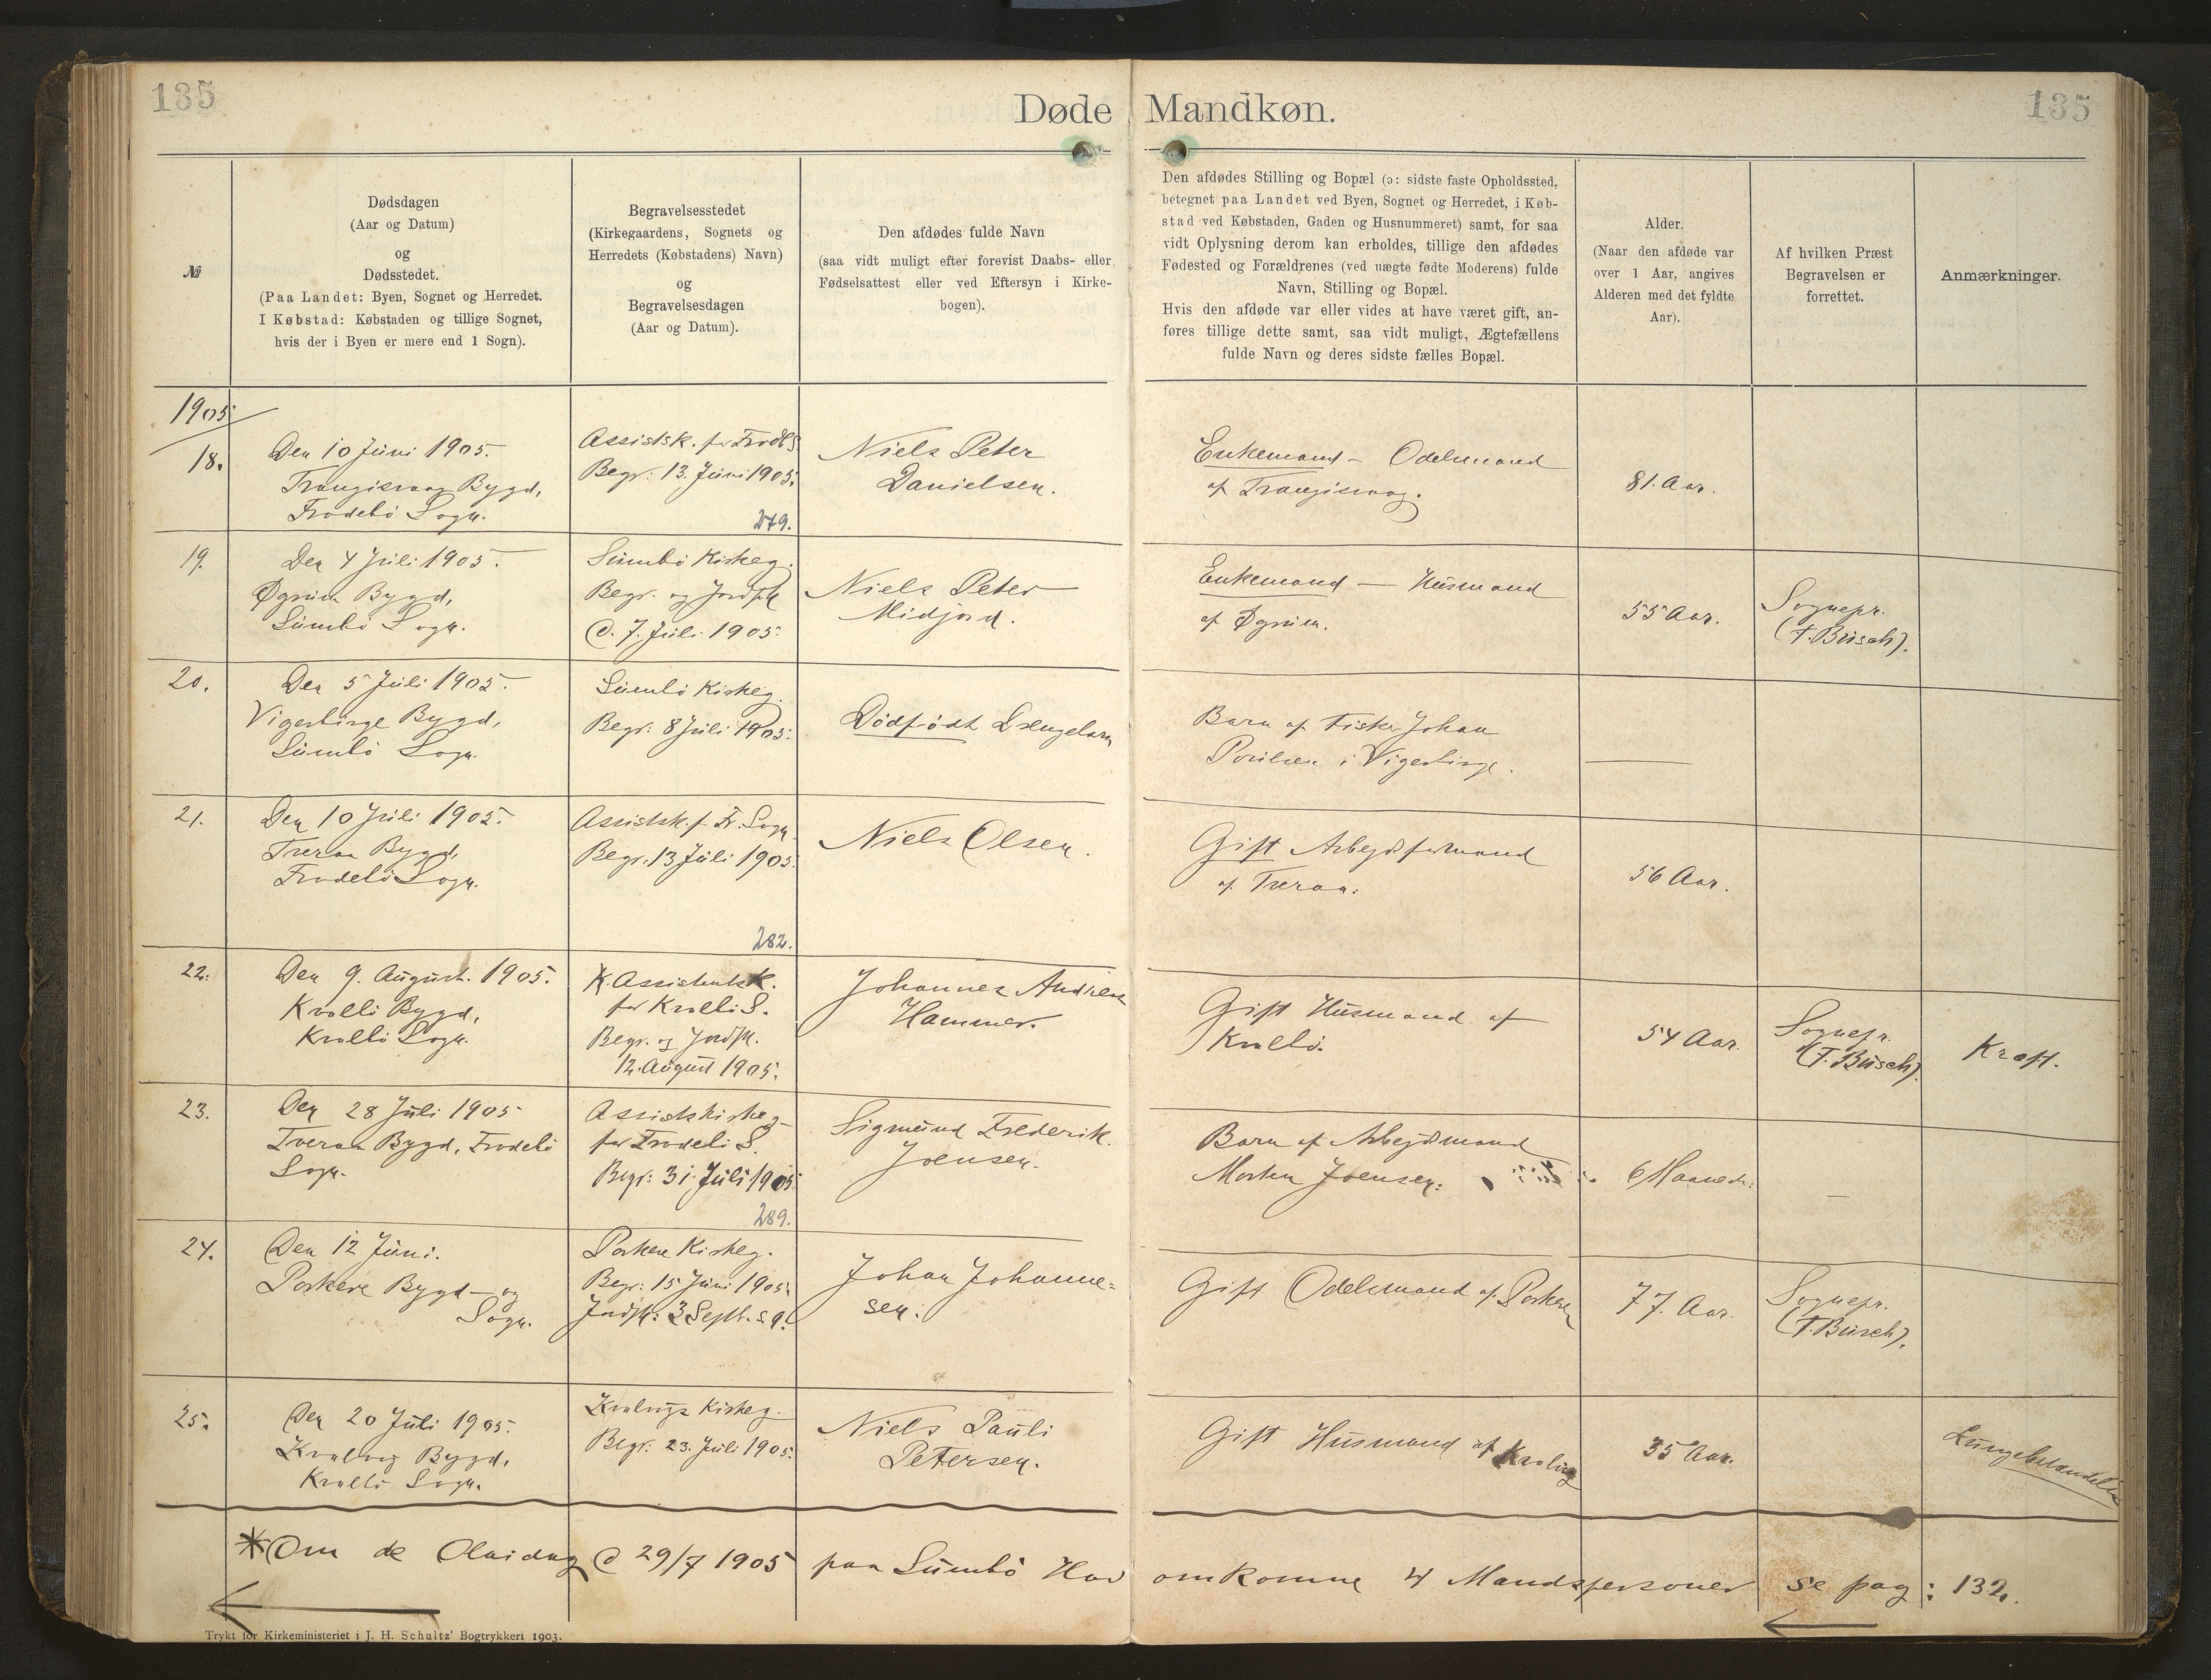 135
Døde Mandkøn.
135
№
Dødsdagen
(Aar og Datum)
og
Dødsstedet.
(Paa Landet: Byen, Sognet og Herredet.
I Købstad: Købstaden og tillige Sognet,
hvis der i Byen er mere end 1 Sogn).
Begravelsesstedet
(Kirkegaardens, Sognets og
Herredets (Købstadens) Navn)
og
Begravelsesdagen
(Aar og Datum).
Den afdødes fulde Navn
(saa vidt muligt efter forevist Daabs- eller
Fødselsattest eller ved Eftersyn i Kirke-
bogen).
Den afdødes Stilling og Bopæl (ɔ: sidste faste Opholdssted,
betegnet paa Landet ved Byen, Sognet og Herredet, i Køb-
stad ved Købstaden, Gaden og Husnummeret) samt, for saa
vidt Oplysning derom kan erholdes, tillige den afdødes
Fødested og Forældrenes (ved uægte fødte Moderens) fulde
Navn, Stilling og Bopæl.
Hvis den afdøde var eller vides at have været gift, an-
føres tillige dette samt, saa vidt muligt, Ægtefællens
fulde Navn og deres sidste fælles Bopæl.
Alder.
(Naar den afdøde var
over 1 Aar, angives
Alderen med det fyldte
Aar).
Af hvilken Præst
Begravelsen er
forrettet.
Anmærkninger.
1905
18.
Den 10 Juni 1905.
Trangisvaag Bygd,
Frodebö Sogn.
Assistsk. for Frodb S
Begr: 13 Juni 1905.
279.
Niels Peter
Danielsen.
Enkemand - Odelsmand
af Trangisvaag.
81. Aar.
19.
Den 4 Juli 1905.
Øgrum Bygd,
Sumbö Sogn.
Sumbö Kirkeg.
Begr. og Jordfk
d. 7. Juli 1905.
Niels Peter
Midjord.
Enkemand — Husmand
af Øgrum.
55 Aar.
Sognepr.
(F. Busch).
20.
Den 5 Juli 1905.
Vigerbirge Bygd,
Sumbö Sogn.
Sumbö Kirkeg.
Begr: 8 Juli 1905.
Dödfödt Drengebarn
Barn af Fisker Johan
Poulsen i Vigerbirge.
21.
Den 10 Juli 1905.
Tveraa Bygd,
Frodebö Sogn.
Assistsk. f. Fr. Sogn
Begr. 13 Juli 1905
282.
Niels Olsen.
Gift Arbejdsformand
af Tveraa.
56 Aar.
22.
Den 9. August. 1905.
Kvalbö Bygd,
Kvalbö Sogn.
K. Assistentsk.
for Kvalbö S.
Begr. og Jordfk.
12. August 1905.
Johannes Andreas
Hammer.
Gift Husmand af
Kvalbö.
54 Aar.
Sognepr.
(F. Busch).
Kræft.
23.
Den 28 Juli 1905
Tveraa Bygd, Frodebö
Sogn.
Assistskirkeg
for Frodebö S.
Begr: 31. Juli 1905
289.
Sigmund Frederik
Joensen.
Barn af Arbejdsmand
Morten Joensen.
6 Maaneder.
24.
Den 12 Juni.
Porkere Bygd - og
Sogn.
Porkere Kirkeg.
Begr: 15 Juni 1905.
Jordfk: 3 Sept. s. a.
Johan Johanne=
sen.
Gift Odelsmand af Porkere
77. Aar.
Sognepr.
(F. Busch).
25.
Den 20 Juli 1905.
Kvalvig Bygd,
Kvalbö Sogn.
Kvalvigs Kirkeg.
Begr: 23. Juli 1905.
Niels Pauli
Petersen.
Gift Husmand af Kvalvig
35 Aar.
*Om de Olaidag d 29/7 1905 paa Sumbö Hav omkomne 4 Mandspersoner se pag: 132.
Trykt for Kirkeministeriet i J. H. Schultz' Bogtrykkeri 1903.